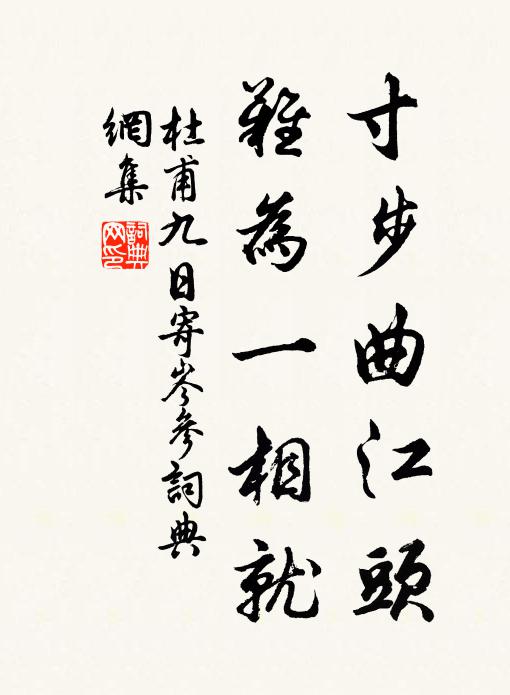 寸步曲江頭
難為一相就
杜甫九日寄岑參詞典
網集
詞典
网印